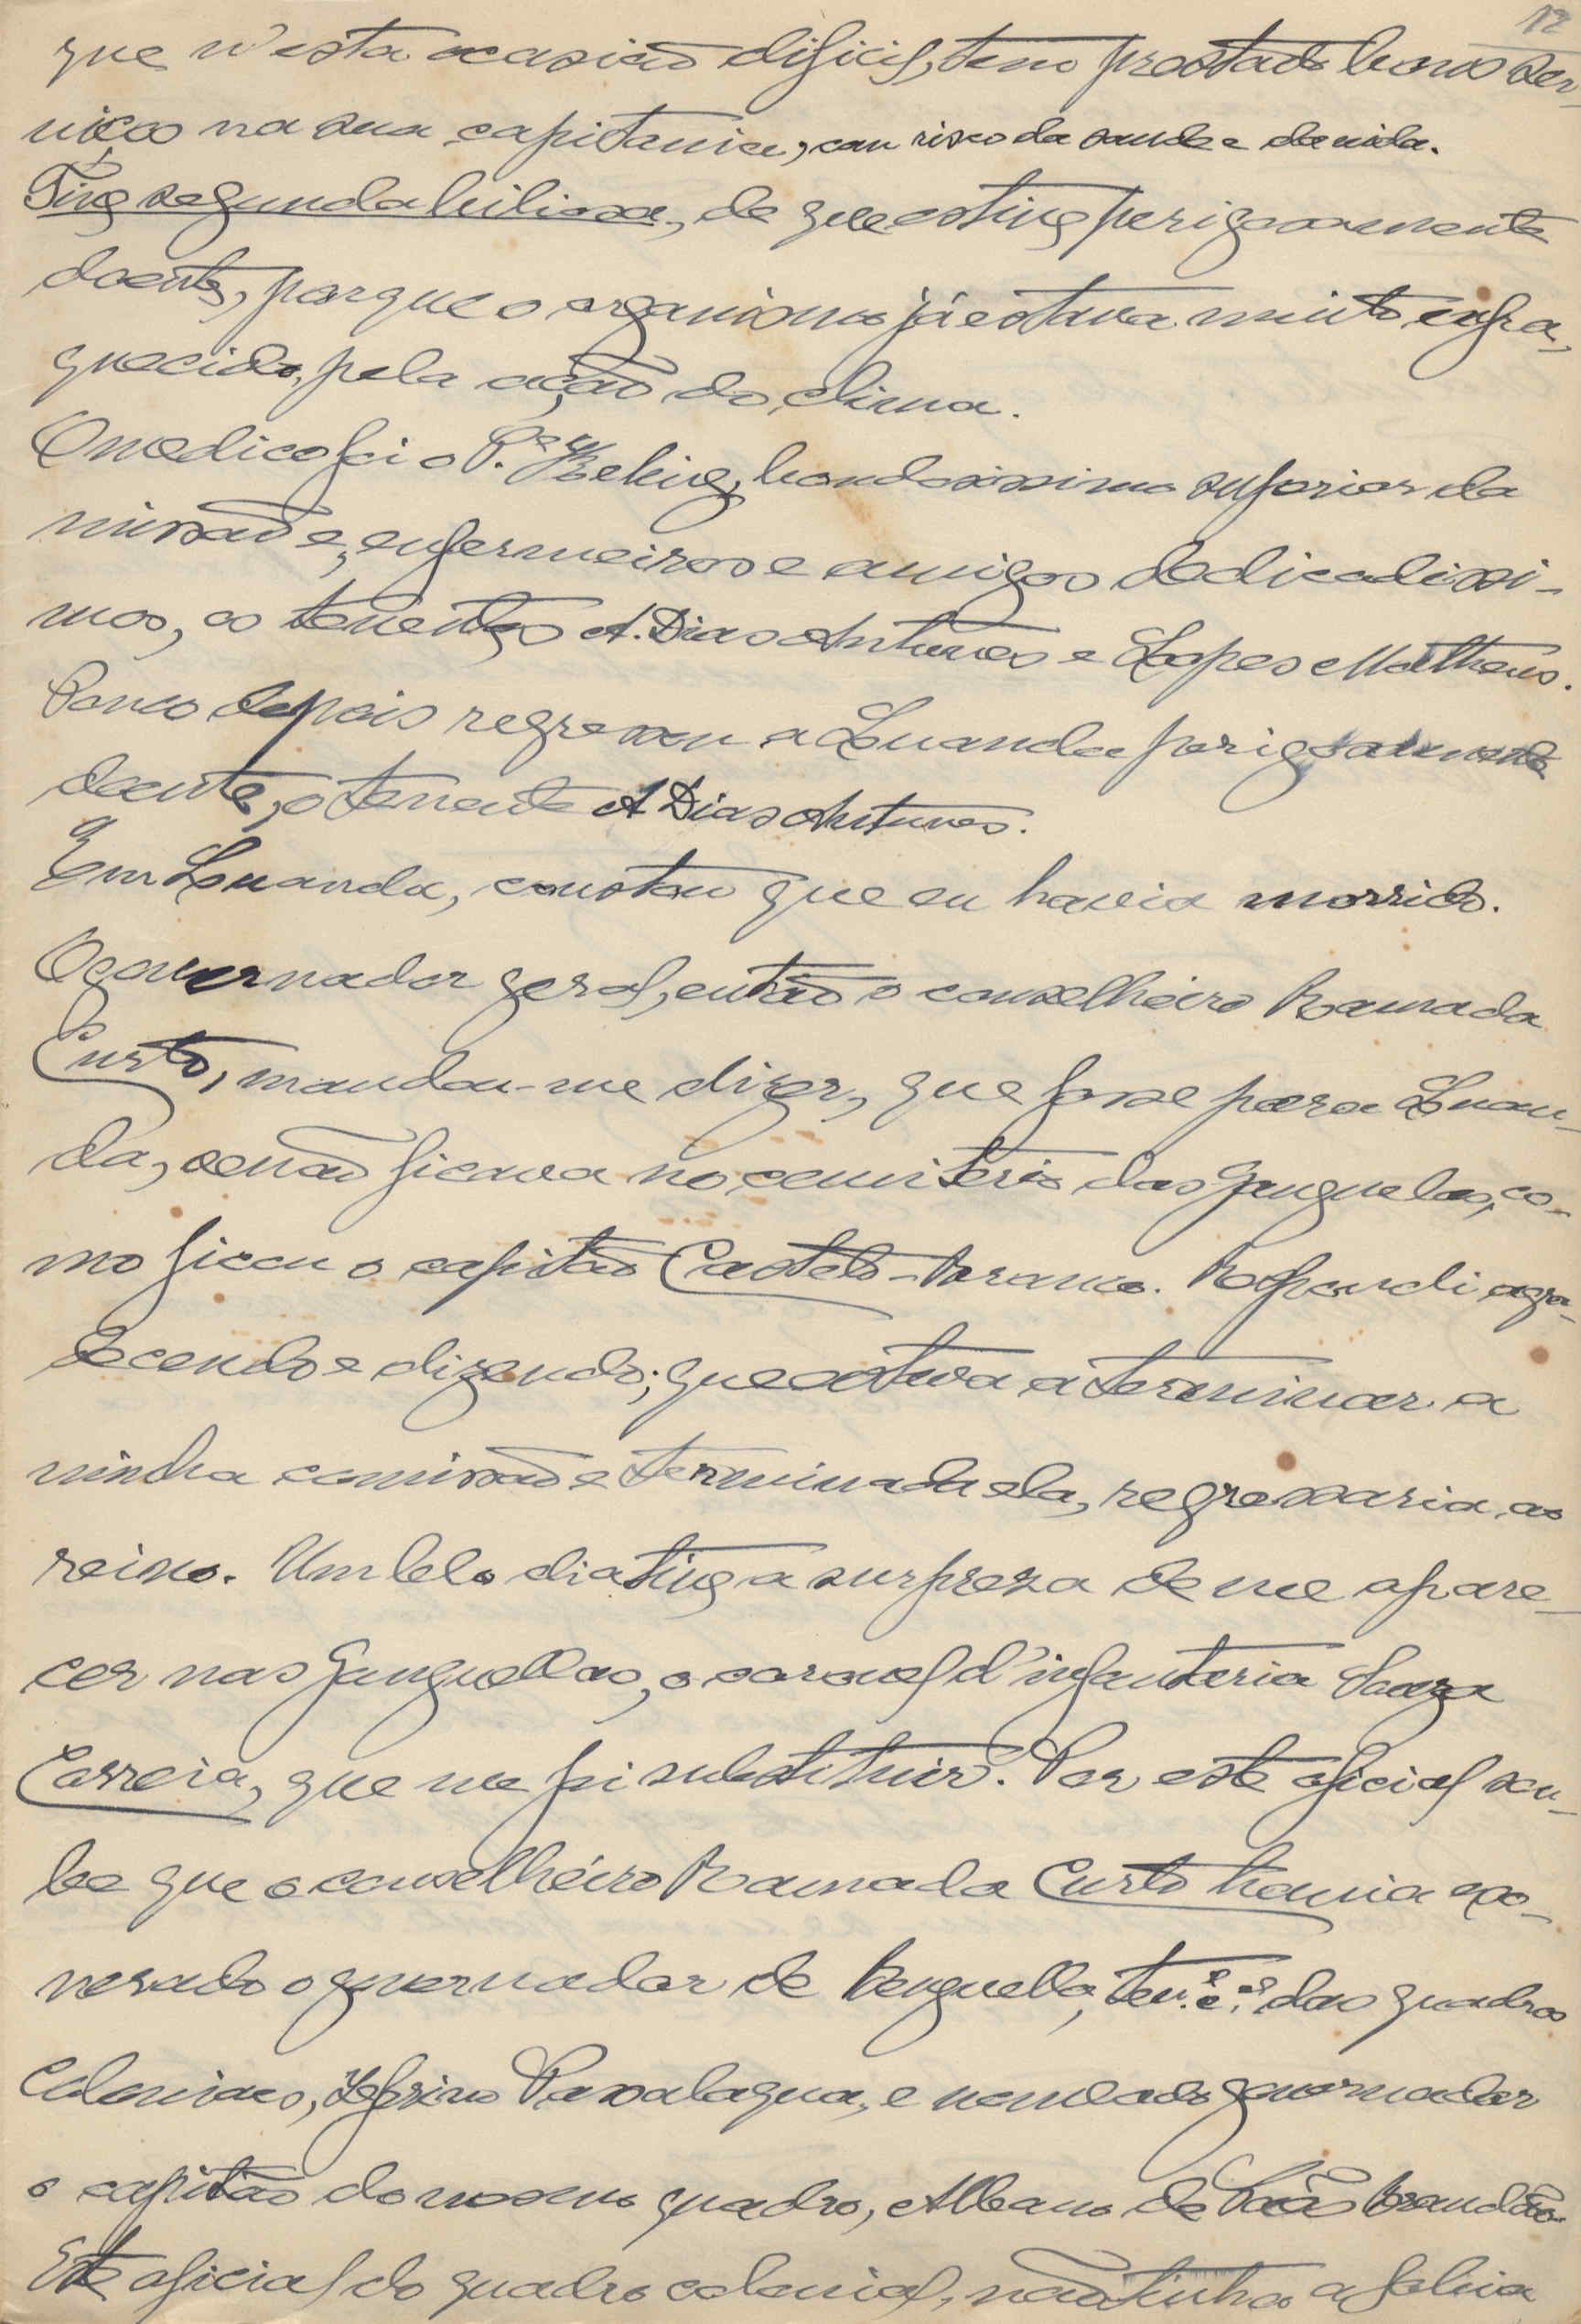 12
que n'esta ocasião dificil, tem prestado bons ser-
viços na sua capitania, com risco da saude e da vida.
Tive segunda biliosa, de que estive perigosamente
doente, porque o organismo já estava muito enfra-
quecido, pela acção do clima.
O medico foi o P.e Beking, bondosissimo superior da
missão e, enfermeiros e amigos dedicadissi-
mos, os tenentes A. Dias Antunes e Lopes Matheus.
Pouco depois regressou a Luanda perigosamente
doente, o tenente A Dias Antunes.
Em Luanda, constou que eu havia morrido.
O governador geral, então o conselheiro Ramada
Curto, mandou-me dizer, que fosse para Luan-
da, senão ficava no cemiterio das Ganguelas, co-
mo ficou o capitão Castelo-Branco. Respondi agra-
decendo e dizendo; que estava a terminar a
minha comissão e terminada ela, regressaria ao
reino. Um belo dia tive a surpreza de me apare-
cer nas Ganguellas, o coronel d'infanteria Souza
Correia, que me foi substituir. Por este oficial sou-
be que o conselheiro Ramada Curto havia exo-
nerado o governador de Benguella, ten.e c.el dos quadros
Coloniaes, Zefrino Passalagua, e nomeado governador
o capitão do nosso quadro, Albano de Paes Brandão
Este oficial do quadro colonial, não tinha a folha